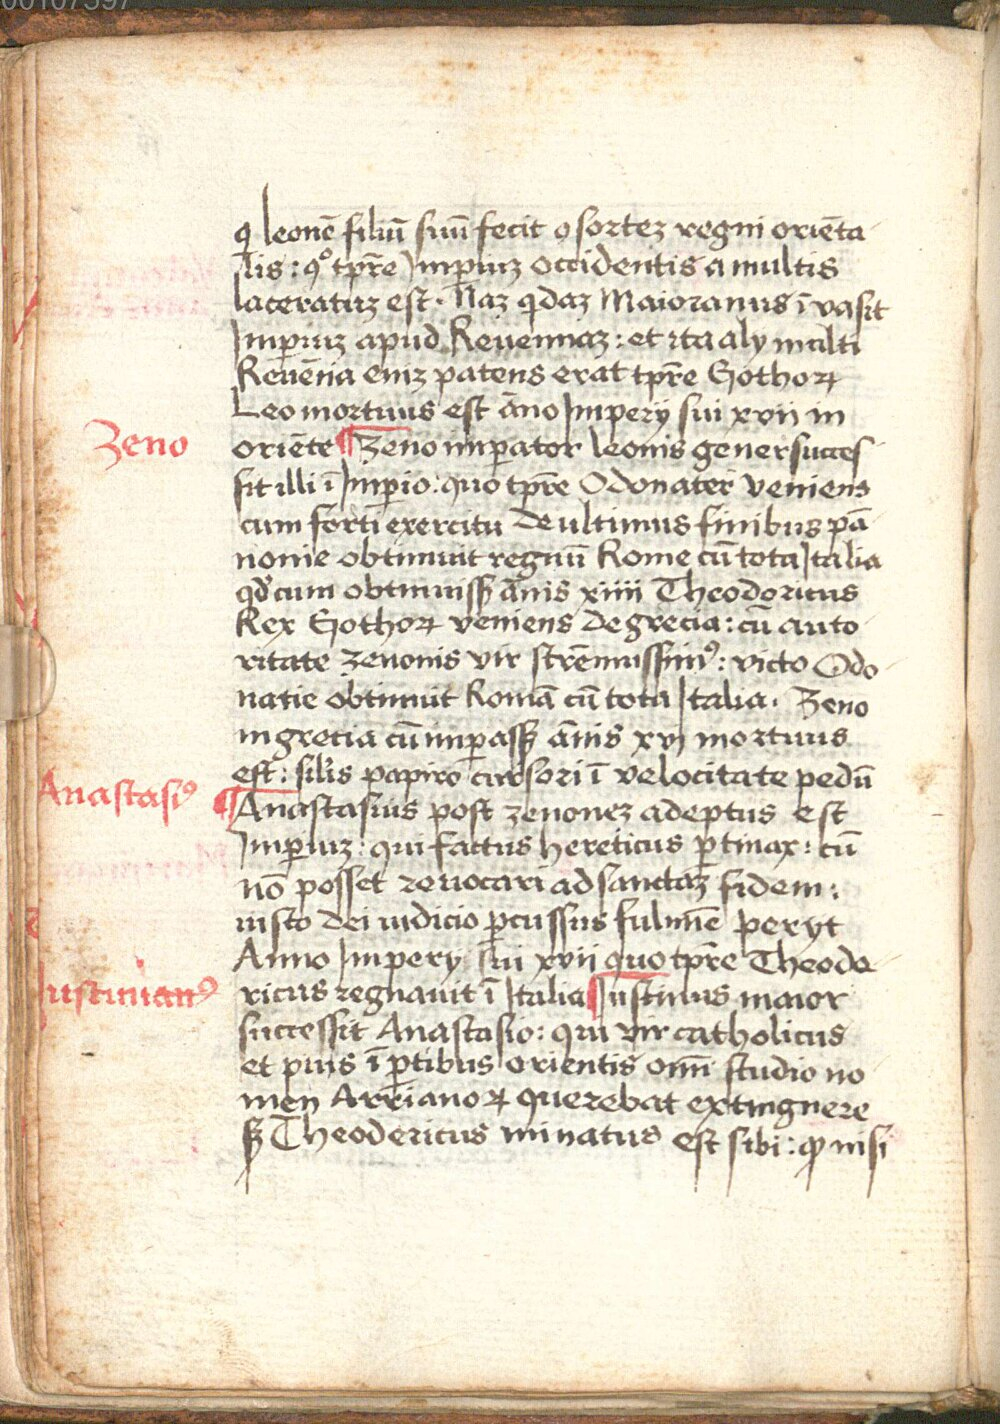 00107597
q leonē filiū suū fecit ꝯsortez regni oriēta
lis: qº tp̄re Imp̄iuz occidentis a multis
laceratuz est. Naz qdaz Maioranus ī vasit
Imp̄iuz apud Revennaz: et ita aly multi
Revēna eniz patens erat tp̄re Gothoꝝ
Leo mortuus est āno Impery sui xvii in
Zeno
oriēte ¶ Zeno imp̄ator leonis gener succes
sit illi ī Imp̄io: quo tp̄re Odonater veniens
cum forti exercitu de ultimus finibus pā
nonie obtinuit regnū Rome cū tota Italia
qd cum obtinuissꝫ ānis xiiii Theodoricus
Rex Gothoꝝ veniens de grecia: cū aucto
ritate zenonis vir strēnuissimꝰ: victo Odo
natre obtinuit Romā cū tota Italia. Zeno
in grecia cū imp̄assꝫ ānis xvj mortuus
est: sil̄is papiro cursori ī velocitate pedū
Anastasiꝰ
¶ Anastasius post zenonez adeptus est
Imp̄iuz: qui factus hereticus p̄tinax: cū
nō posset revocari ad sanctaz fidem:
iusto dei iudicio p̄cussus fulmīe peryt
Anno Impery sui xvii quo tp̄re Theodo
Iustinianꝰ
ricus regnavit ī Italia ¶ Iustinus maior
successit Anastasio: qui vir catholicus
et pius ī p̄tibus orientis om̄i studio no
men Arrianoꝝ querebat extinguere
sꝫ Theodericus minatus est sibi: ꝙ nisi